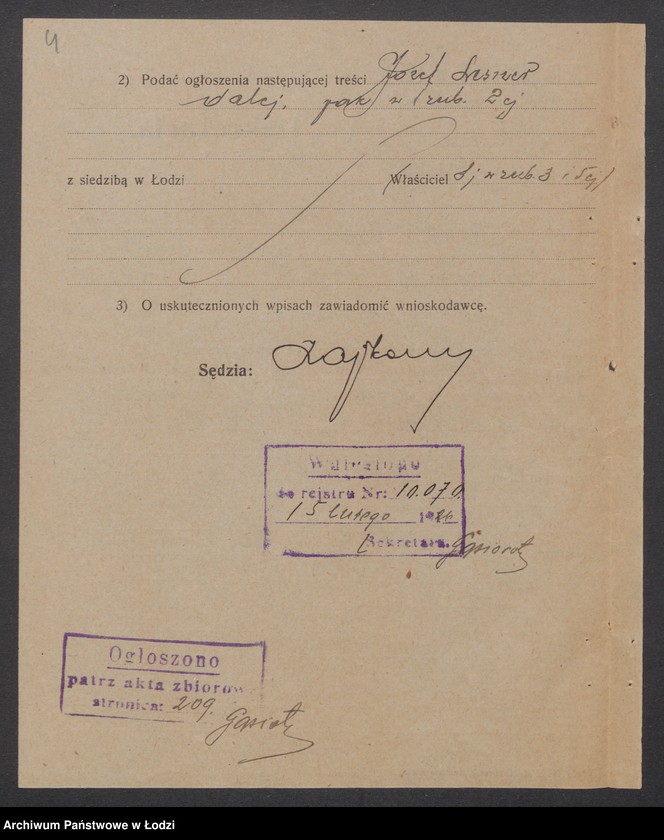 4
2) Podać ogłoszenia następującej treści Józef
dalej, jak w rub. 2ej
z siedzibą w Łodzi (Właściciel dj w rub. 3 i 5ej)
3) O uskutecznionych wpisach zawiadomić wnioskodawcę.
Sędzia:
Wciągnięto
do rejstru Nr: 10.070.
15 lutego 1926
Sekretarz.
Ogłoszono
patrz akta zbiorowe
stronica: 209.
Archiwum Państwowe w Łodzi